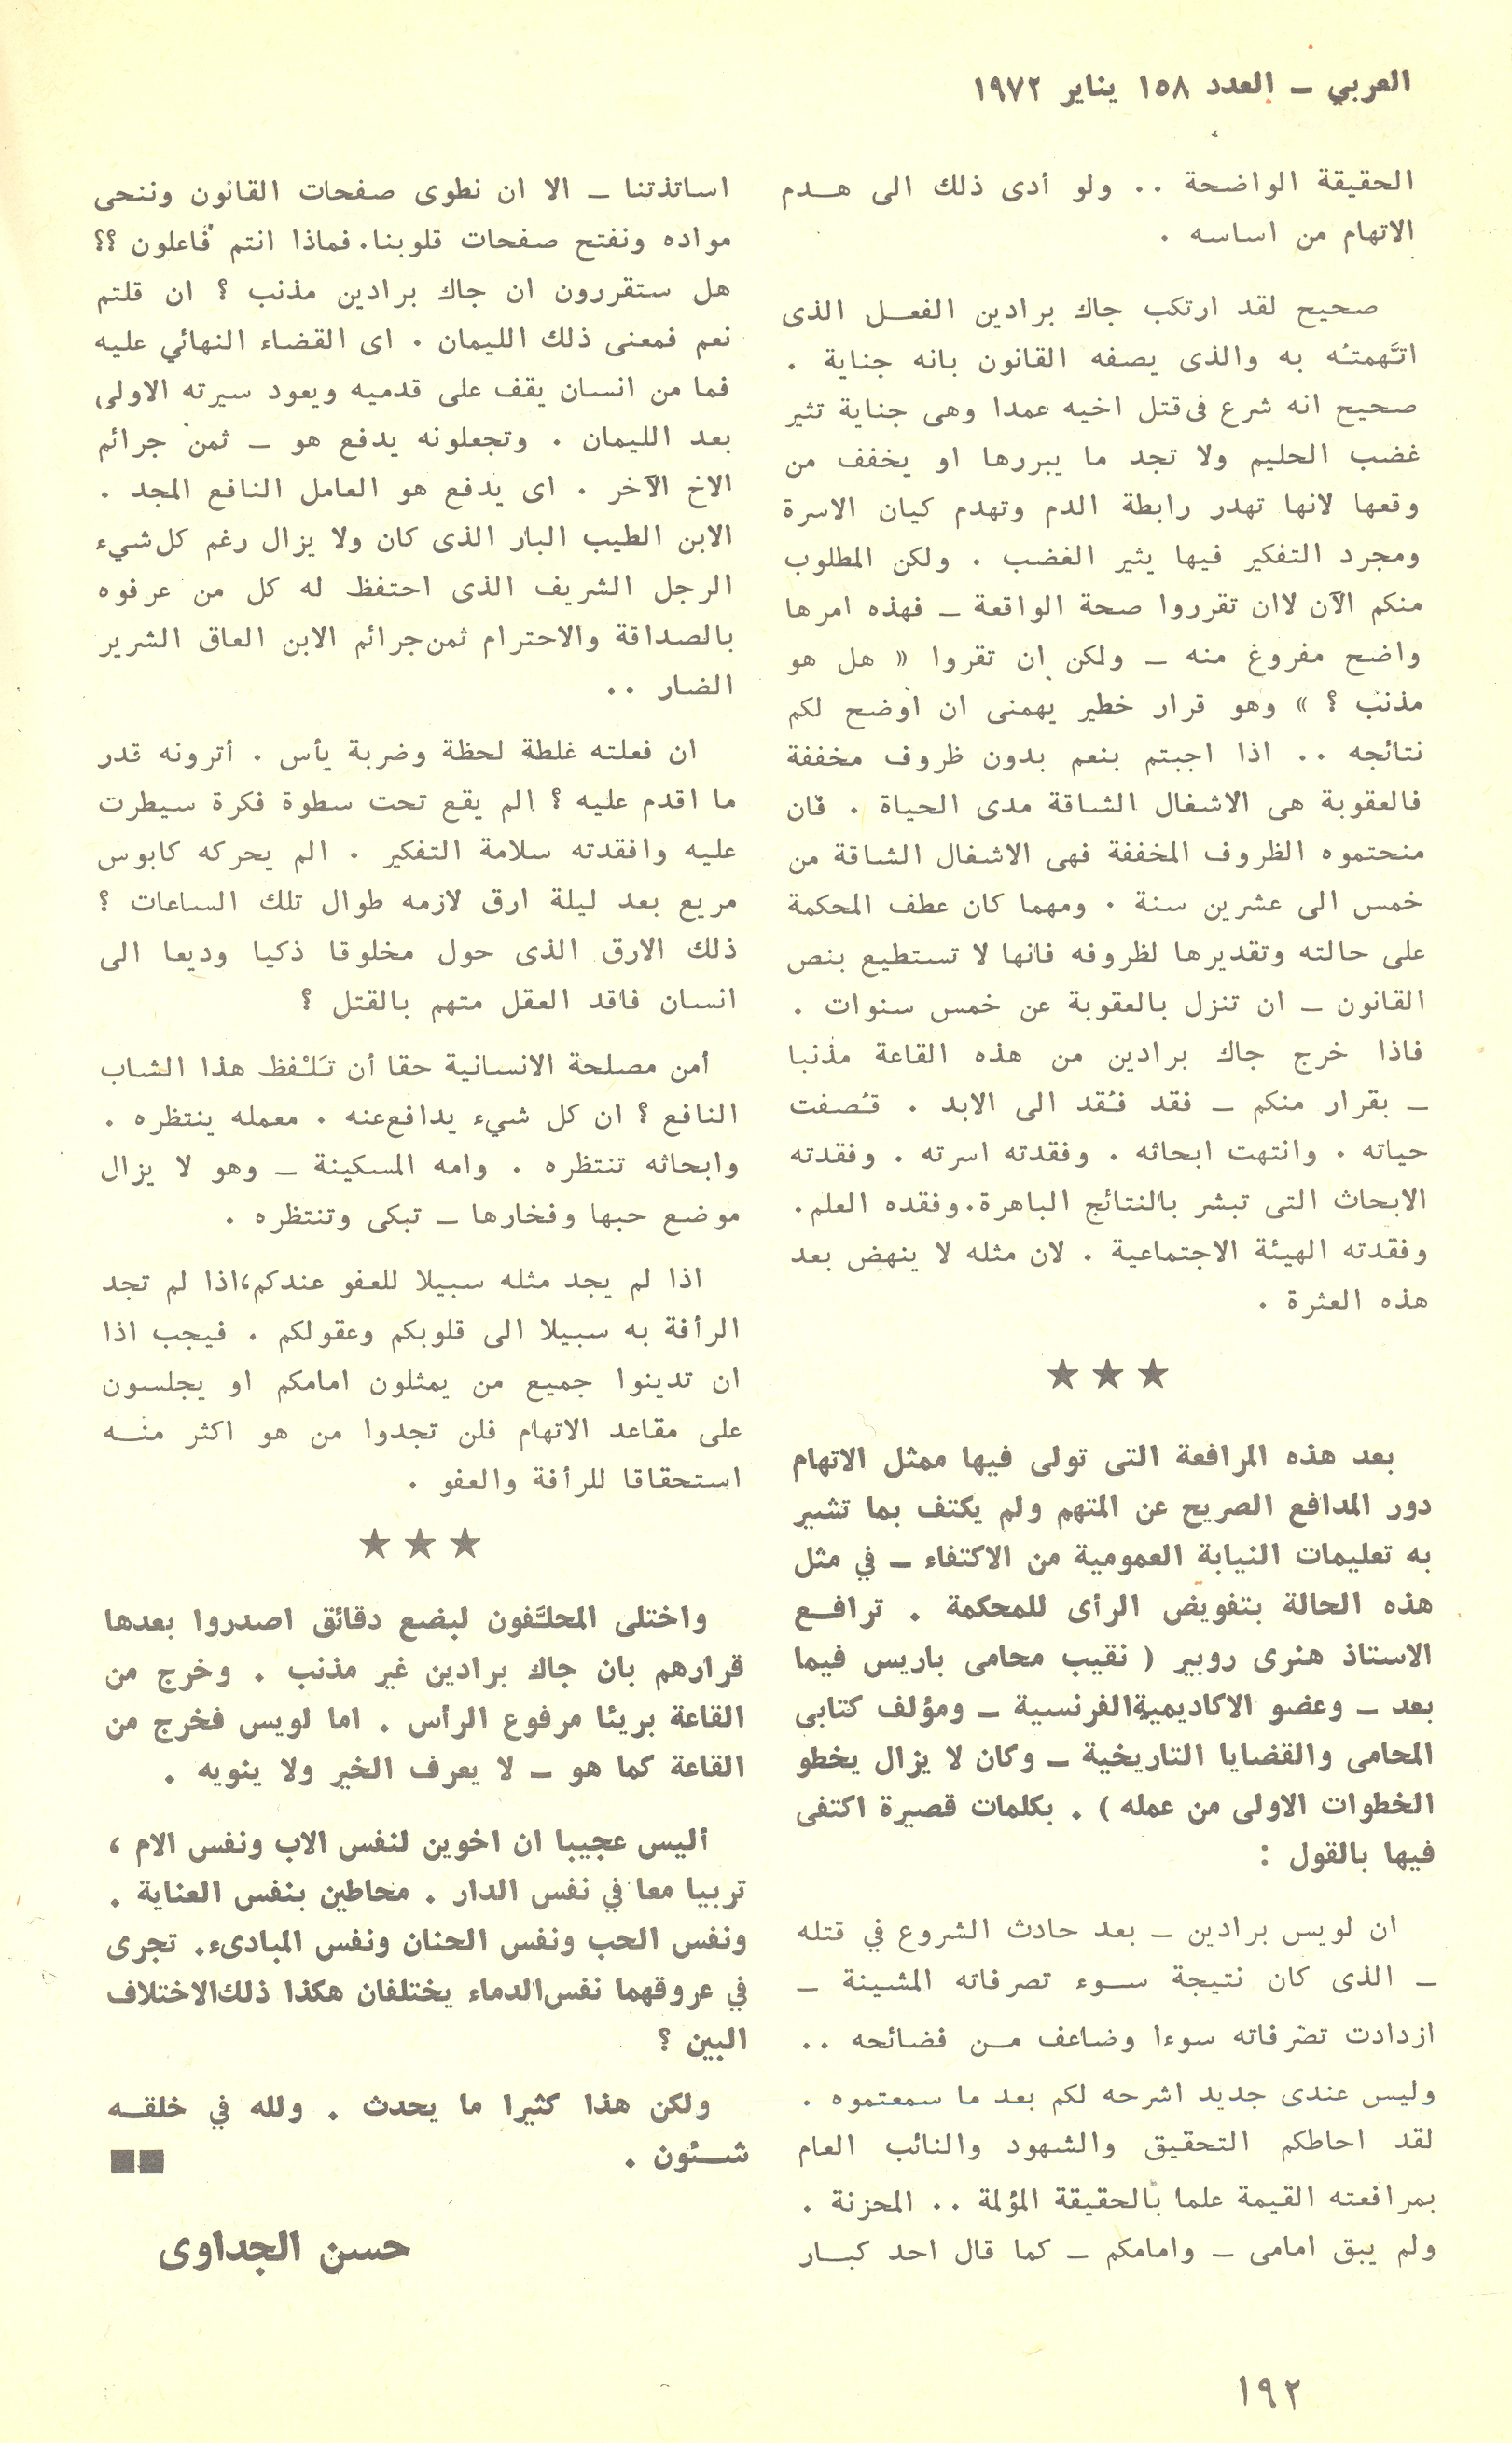 العربي – العدد ١٥٨ يناير ١٩٧٢
الحقيقة الواضحة .. ولو أدى ذلك الى هدم
الاتهام من اساسه .
صحيح لقد ارتكب جاك برادين الفعل الذى
اتَّهمتُه به والذى يصفه القانون بانه جناية .
صحيح انه شرع فى قتل اخيه عمدا وهى جناية تثير
غضب الحليم ولا تجد ما يبررها او يخفف من
وقعها لانها تهدر رابطة الدم وتهدم كيان الاسرة
ومجرد التفكير فيها يثير الغضب . ولكن المطلوب
منكم الآن لاان تقرروا صحة الواقعة – فهذه امرها
واضح مفروغ منه – ولكن ان تقروا « هل هو
مذنب ؟ » وهو قرار خطير يهمنى ان اوضح لكم
نتائجه .. اذا اجبتم بنعم بدون ظروف مخففة
فالعقوبة هى الاشغال الشاقة مدى الحياة . فان
منحتموه الظروف المخففة فهى الاشغال الشاقة من
خمس الى عشرين سنة . ومهما كان عطف المحكمة
على حالته وتقديرها لظروفه فانها لا تستطيع بنص
القانون – ان تنزل بالعقوبة عن خمس سنوات .
فاذا خرج جاك برادين من هذه القاعة مذنبا
– بقرار منكم – فقد فُقد الى الابد . قُصفت
حياته . وانتهت ابحاثه . وفقدته اسرته . وفقدته
الابحاث التى تبشر بالنتائج الباهرة. وفقده العلم.
وفقدته الهيئة الاجتماعية . لان مثله لا ينهض بعد
هذه العثرة .
★ ★ ★
بعد هذه المرافعة التى تولى فيها ممثل الاتهام
دور المدافع الصريح عن المتهم ولم يكتف بما تشير
به تعليمات النيابة العمومية من الاكتفاء – في مثل
هذه الحالة بتفويض الرأى للمحكمة . ترافع
الاستاذ هنرى روبير ( نقيب محامى باريس فيما
بعد – وعضو الاكاديمية الفرنسية – ومؤلف كتابى
المحامى والقضايا التاريخية – وكان لا يزال يخطو
الخطوات الاولى من عمله ) . بكلمات قصيرة اكتفى
فيها بالقول :
ان لويس برادين – بعد حادث الشروع في قتله
– الذى كان نتيجة سوء تصرفاته المشينة –
ازدادت تصرفاته سوءا وضاعف من فضائحه ..
وليس عندى جديد اشرحه لكم بعد ما سمعتموه .
لقد احاطكم التحقيق والشهود والنائب العام
بمرافعته القيمة علما بالحقيقة المؤلمة .. المحزنة .
ولم يبق امامى – وامامكم – كما قال احد كبار
اساتذتنا – الا ان نطوى صفحات القانون وننحى
مواده ونفتح صفحات قلوبنا. فماذا انتم فاعلون ؟؟
هل ستقررون ان جاك برادين مذنب ؟ ان قلتم
نعم فمعنى ذلك الليمان . اى القضاء النهائي عليه
فما من انسان يقف على قدميه ويعود سيرته الاولى،
بعد الليمان . وتجعلونه يدفع هو – ثمن جرائم
الاخ الآخر . اى يدفع هو العامل النافع المجد .
الابن الطيب البار الذى كان ولا يزال رغم كل شيء
الرجل الشريف الذى احتفظ له كل من عرفوه
بالصداقة والاحترام ثمن جرائم الابن العاق الشرير
الضار ..
ان فعلته غلطة لحظة وضربة يأس . أترونه قدر
ما اقدم عليه ؟ الم يقع تحت سطوة فكرة سيطرت
عليه وافقدته سلامة التفكير . الم يحركه كابوس
مريع بعد ليلة ارق لازمه طوال تلك الساعات ؟
ذلك الارق الذى حول مخلوقا ذكيا وديعا الى
انسان فاقد العقل متهم بالقتل ؟
أمن مصلحة الانسانية حقا أن تَلْفظ هذا الشاب
النافع ؟ ان كل شيء يدافع عنه . معمله ينتظره .
وابحاثه تنتظره . وامه المسكينة – وهو لا يزال
موضع حبها وفخارها – تبكى وتنتظره .
اذا لم يجد مثله سبيلا للعفو عندكم، اذا لم تجد
الرأفة به سبيلا الى قلوبكم وعقولكم . فيجب اذا
ان تدينوا جميع من يمثلون امامكم او يجلسون
على مقاعد الاتهام فلن تجدوا من هو اكثر منه
استحقاقا للرأفة والعفو .
★ ★ ★
واختلى المحلَّفون لبضع دقائق اصدروا بعدها
قرارهم بان جاك برادين غير مذنب . وخرج من
القاعة بريئا مرفوع الرأس . اما لويس فخرج من
القاعة كما هو – لا يعرف الخير ولا ينويه .
أليس عجيبا ان اخوين لنفس الاب ونفس الام ،
تربيا معا في نفس الدار . محاطين بنفس العناية .
ونفس الحب ونفس الحنان ونفس المبادىء. تجرى
في عروقهما نفس الدماء يختلفان هكذا ذلك الاختلاف
البين ؟
ولكن هذا كثيرا ما يحدث . ولله في خلقه
شئون .
حسن الجداوى
١٩٢